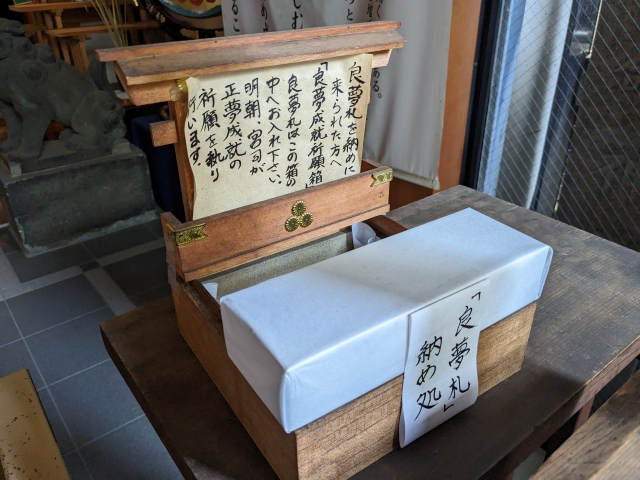 良夢札を納めに
来られた方へ
「良夢成就祈願箱」
良夢札はこの箱の
中へお入れ下さい
明朝、宮司が
正夢成就の
祈願を執り
行います。
「良夢札」
納め処